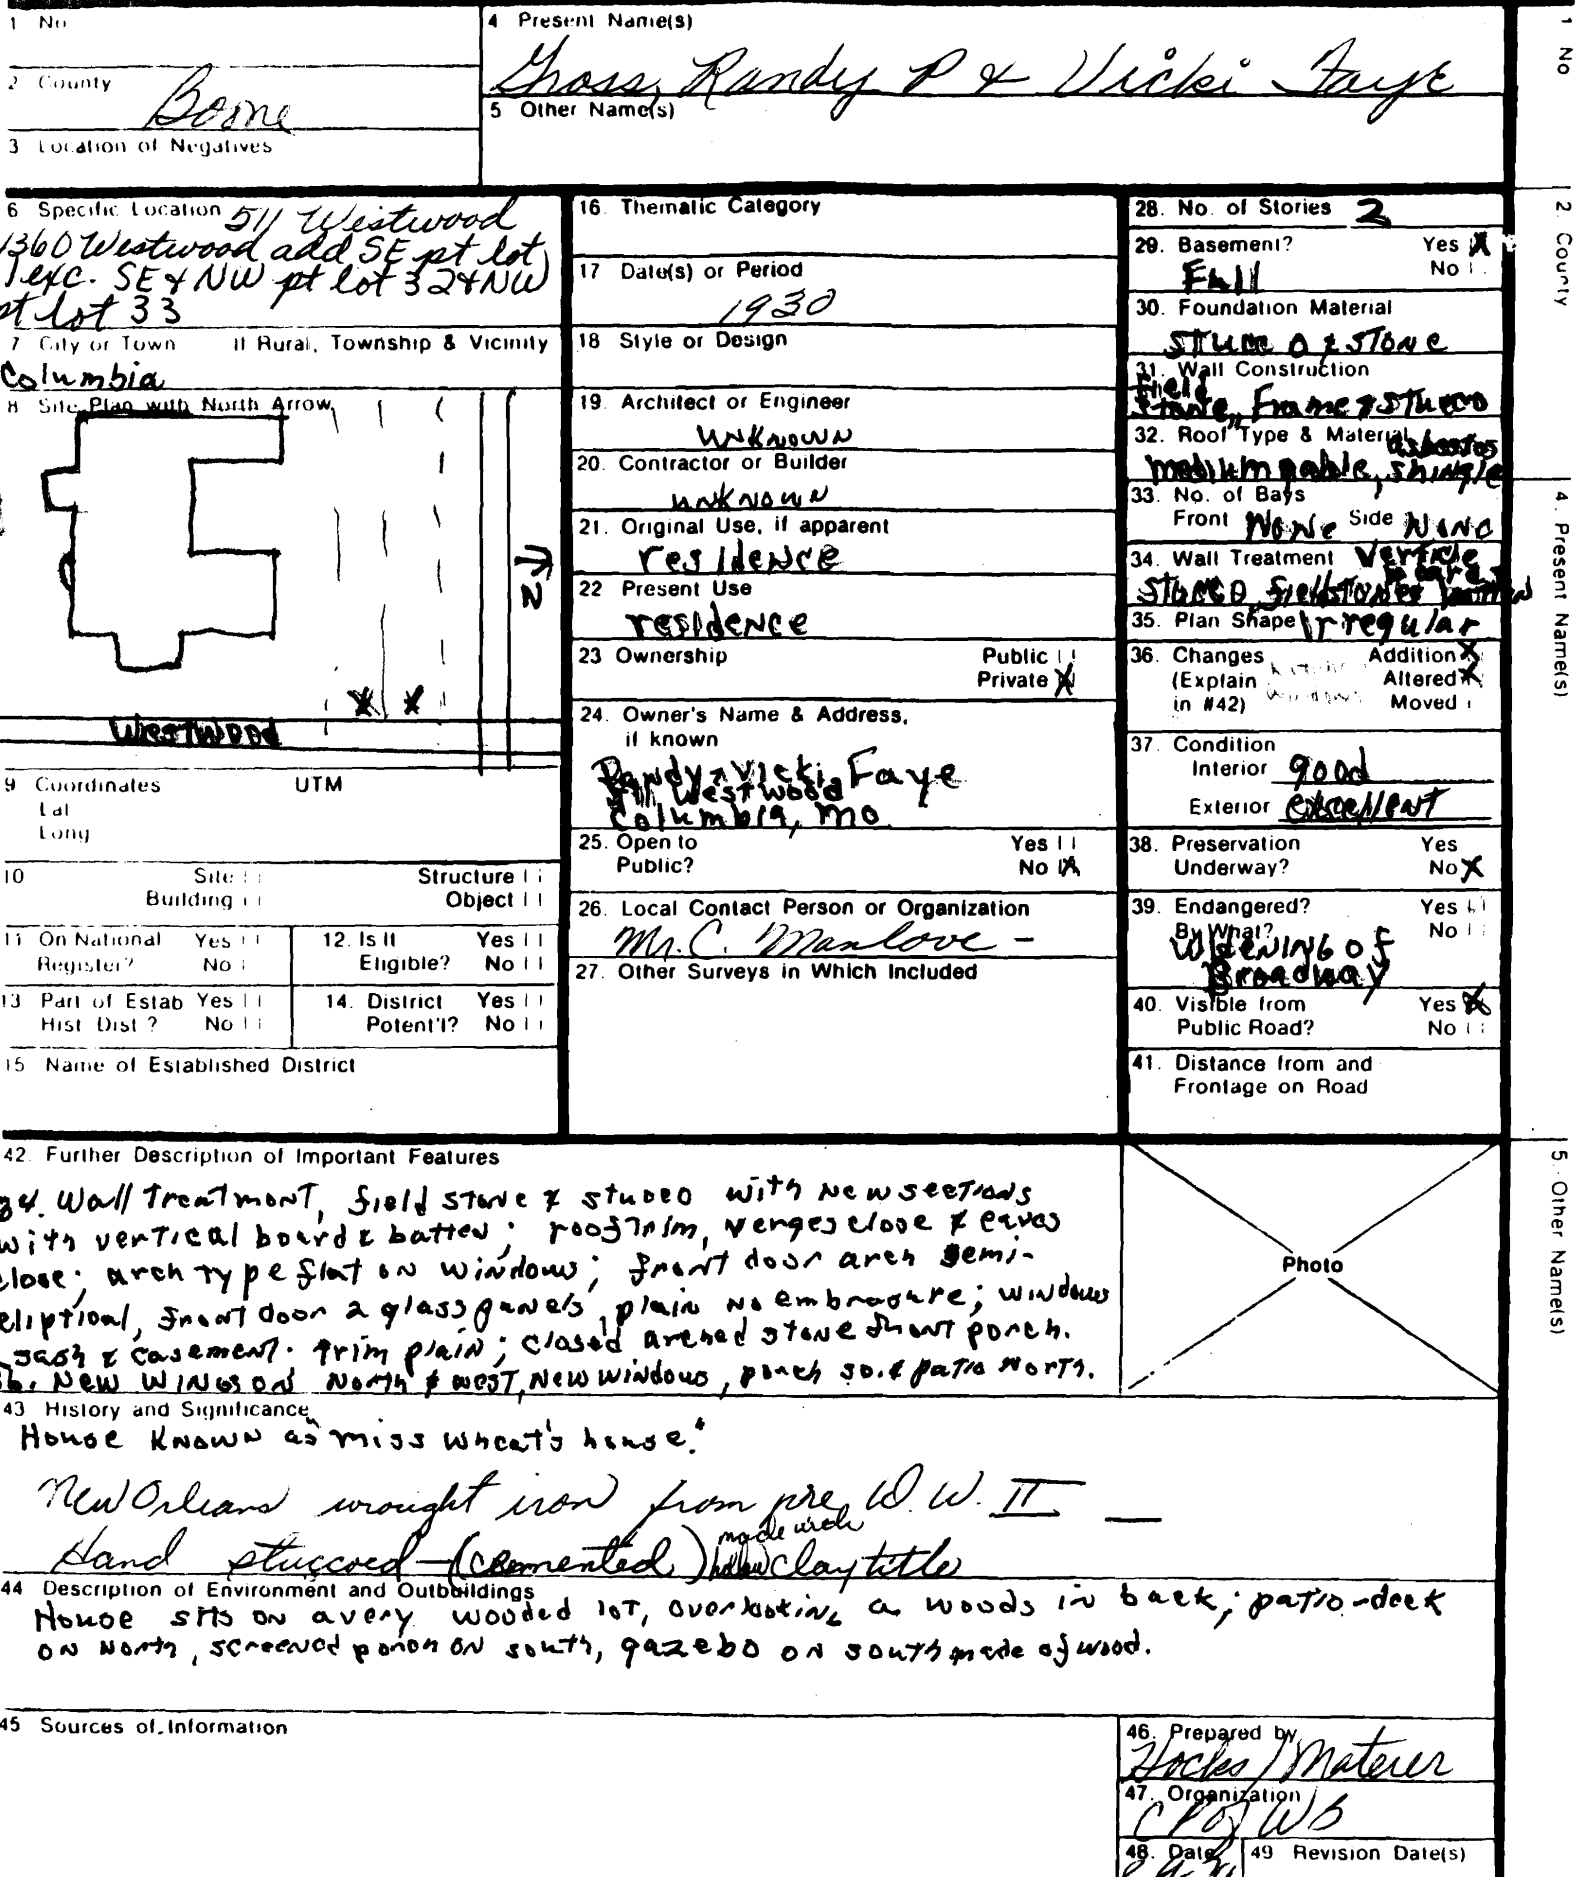 1 No
4 Present Name(s)
Gross, Randy P & Vicki Faye
2 County
Boone
5 Other Name(s)
3 Location of Negatives
6 Specific Location 511 Westwood
1360 Westwood add SE pt lot
1 exc. SE & NW pt lot 32 & NW
pt lot 33
7 City or Town If Rural, Township & Vicinity
Columbia
8 Site Plan with North Arrow
N
Westwood
9 Coordinates UTM
Lat
Long
10 Site Structure
Building Object
11 On National Register? Yes No
12. Is It Eligible? Yes No
13 Part of Estab Hist Dist? Yes No
14. District Potent'l? Yes No
15 Name of Established District
16. Thematic Category
17 Date(s) or Period
1930
18 Style or Design
19. Architect or Engineer
UNKNOWN
20. Contractor or Builder
UNKNOWN
21. Original Use, if apparent
residence
22 Present Use
residence
23 Ownership Public
Private X
24. Owner's Name & Address,
if known
Randy & Vicki Faye
511 Westwood
Columbia, Mo
25. Open to Yes
Public? No X
26. Local Contact Person or Organization
Mr. C. Manlove -
27. Other Surveys in Which Included
28. No. of Stories 2
29. Basement? Yes X
Full No
30. Foundation Material
stucco & stone
31. Wall Construction
field
stone, Frame & stucco
32. Roof Type & Material asbestos
medium gable, shingle
33. No. of Bays
Front None Side None
34. Wall Treatment Verticle
board
stucco, fieldstone batten
35. Plan Shape Irregular
36. Changes Addition X
(Explain Altered X
in #42) windows Moved
37. Condition
Interior good
Exterior excellent
38. Preservation Yes
Underway? No X
39. Endangered? Yes
By What? No
Widening of
Broadway
40. Visible from Yes X
Public Road? No
41. Distance from and
Frontage on Road
42. Further Description of Important Features
34. Wall Treatment, field stone & stucco with new sections
with vertical board & batten; roof trim, verges close & eaves
close; arch type flat on windows; front door arch semi-
eliptical, front door 2 glass panels, plain no embrasure; windows
sash & casement. trim plain; closed arched stone front porch.
36. New wings on North & west, new windows, porch so. & patio North.
Photo
43 History and Significance
House known as "miss wheat's house."
New Orleans wrought iron from pre W. W. II —
made with
Hand stuccoed - (cemented) hollow clay title
44 Description of Environment and Outbuildings
House sits on a very wooded lot, overlooking a woods in back; patio-deck
on North, screened porch on south, gazebo on south made of wood.
45 Sources of Information
46. Prepared by
Hocks / Materer
47. Organization
48. Date
49 Revision Date(s)
1 No
2 County
4. Present Name(s)
5. Other Name(s)